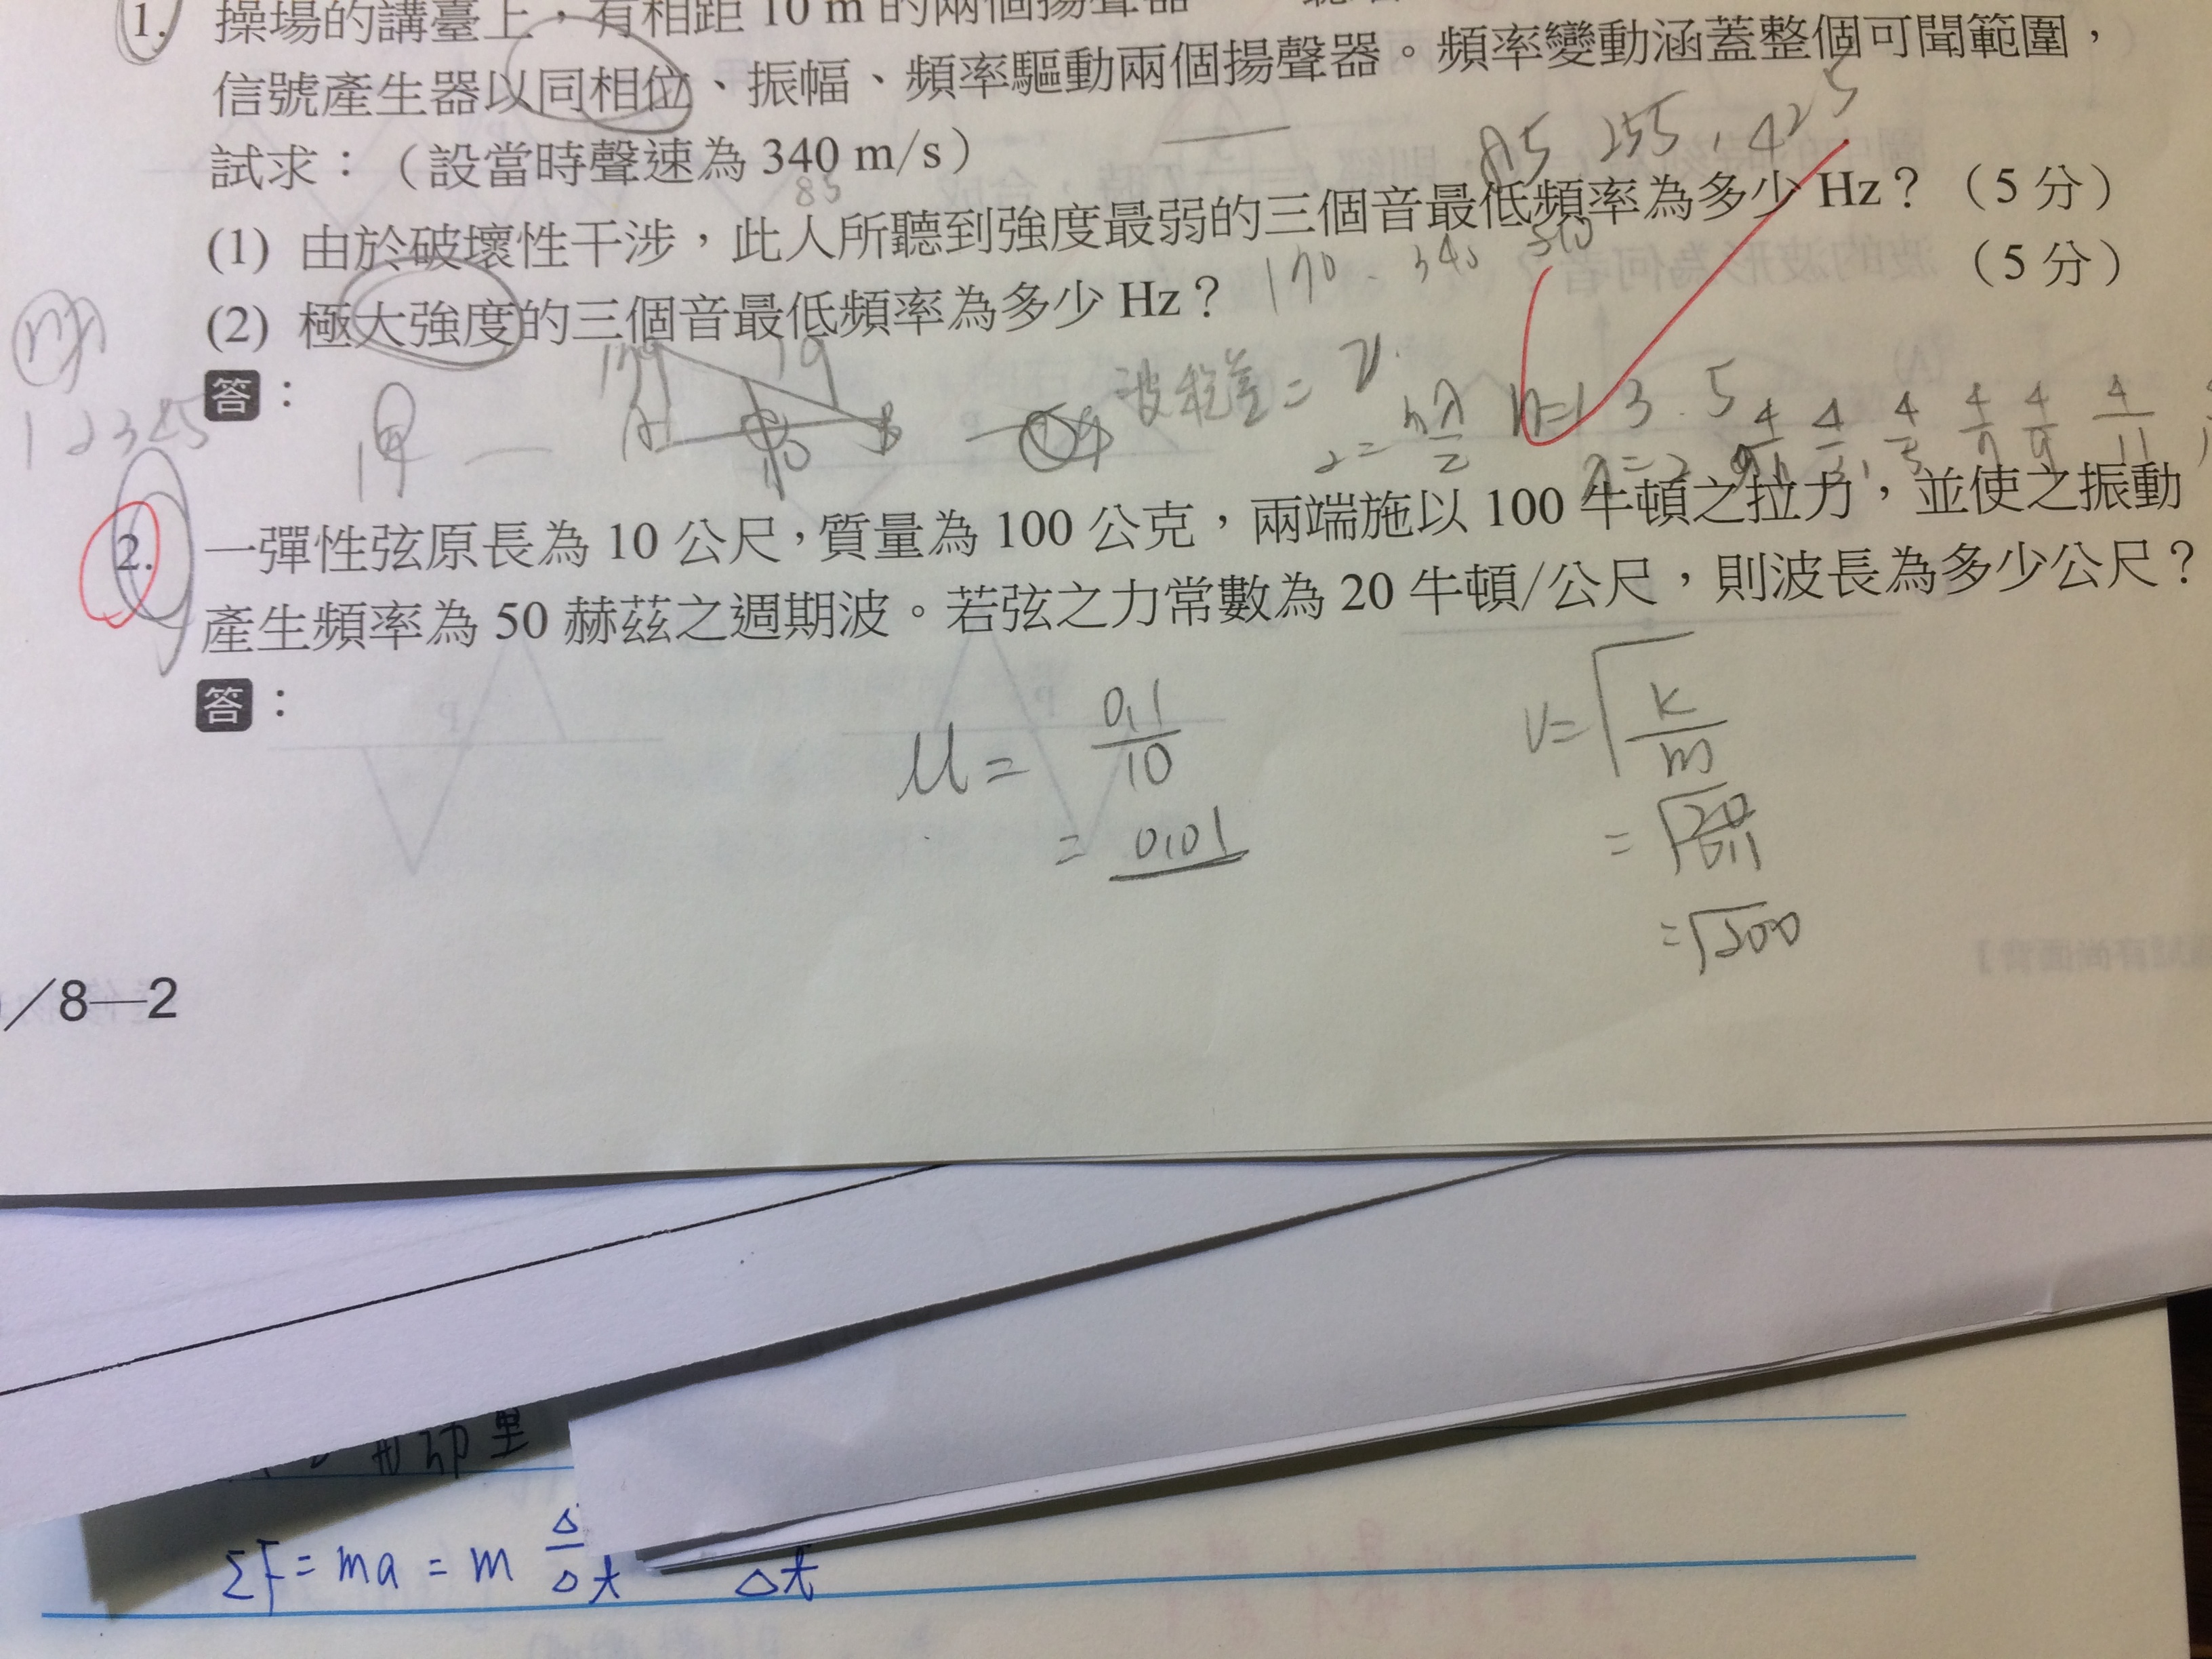 1. 操場的講臺上，有相距 10 m 的兩個揚聲器
信號產生器以同相位、振幅、頻率驅動兩個揚聲器。頻率變動涵蓋整個可聞範圍，
試求：（設當時聲速為 340 m/s）
85
85 255 , 425
(1) 由於破壞性干涉，此人所聽到強度最弱的三個音最低頻率為多少 Hz？（5 分）
170 - 340 510
(2) 極大強度的三個音最低頻率為多少 Hz？
（5 分）
答：
波程差 = 2
2 = nλ/2 n=1 3 . 5
一彈性弦原長為 10 公尺，質量為 100 公克，兩端施以 100 牛頓之拉力，並使之振動
2.
產生頻率為 50 赫茲之週期波。若弦之力常數為 20 牛頓/公尺，則波長為多少公尺？
答：
μ = 0.1/10
= 0.01
v = √(k/m)
= √(20/0.1)
= √200
/8—2
ΣF = ma = m Δ/Δt Δt